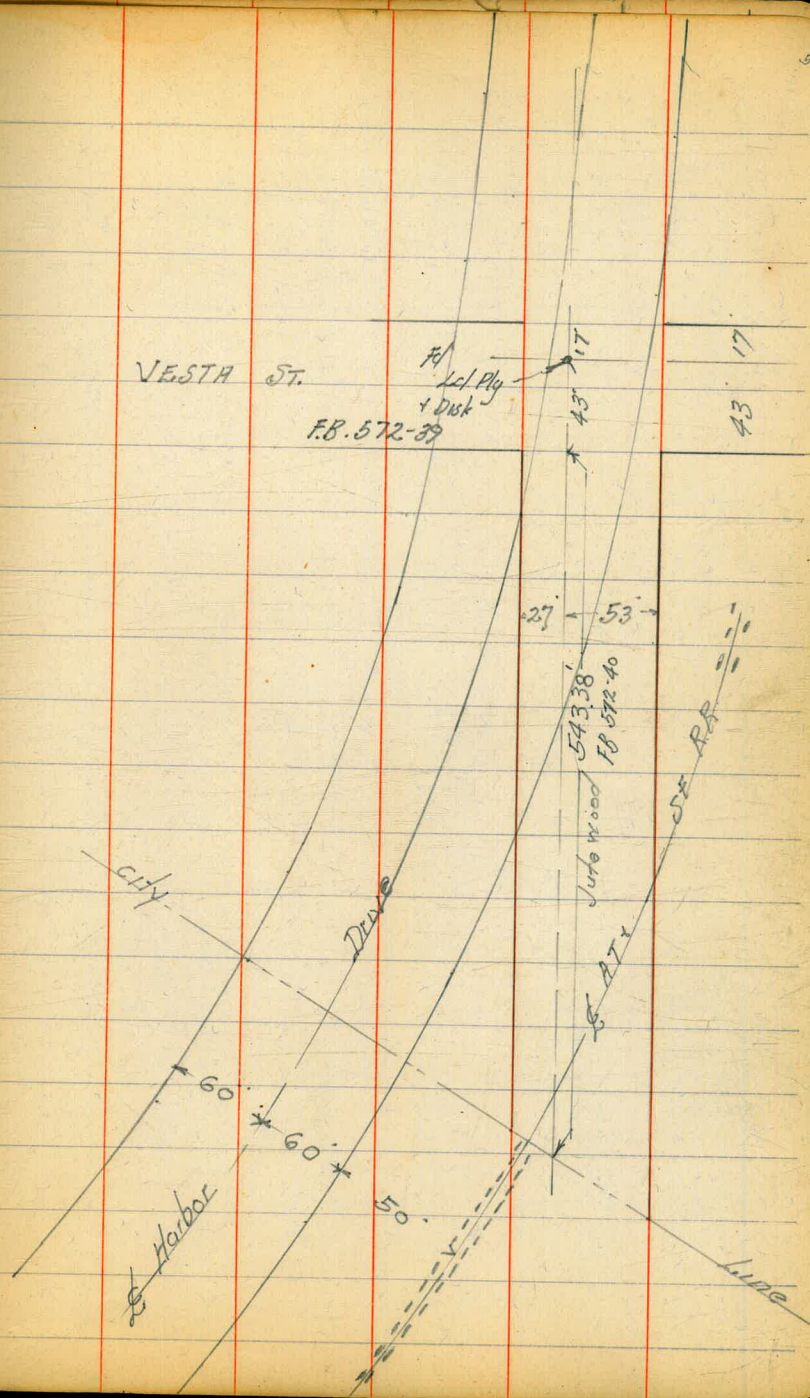 VESTA ST.
Fd
Ld Plg
& Disk
F.B. 572-39
17
43
17
43
27
53
543.38
FB 572-40
RR
CITY
Drive
60
60
50
Harbor
Line